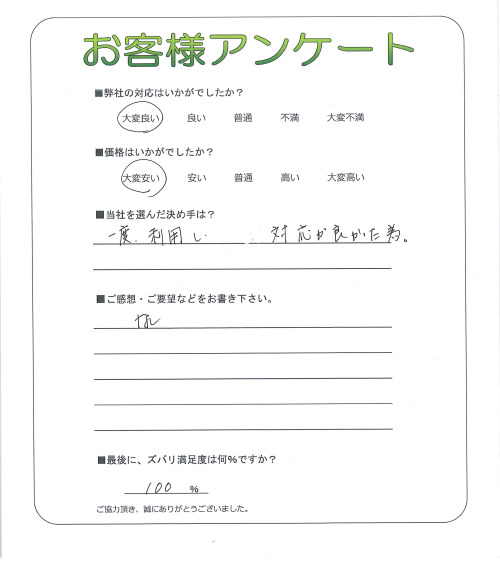 お客様アンケート
■弊社の対応はいかがでしたか？
大変良い 良い 普通 不満 大変不満
■価格はいかがでしたか？
大変安い 安い 普通 高い 大変高い
■当社を選んだ決め手は？
一度、利用し 対応が良かった為。
■ご感想・ご要望などをお書き下さい。
なし
■最後に、ズバリ満足度は何％ですか？
100 %
ご協力頂き、誠にありがとうございました。